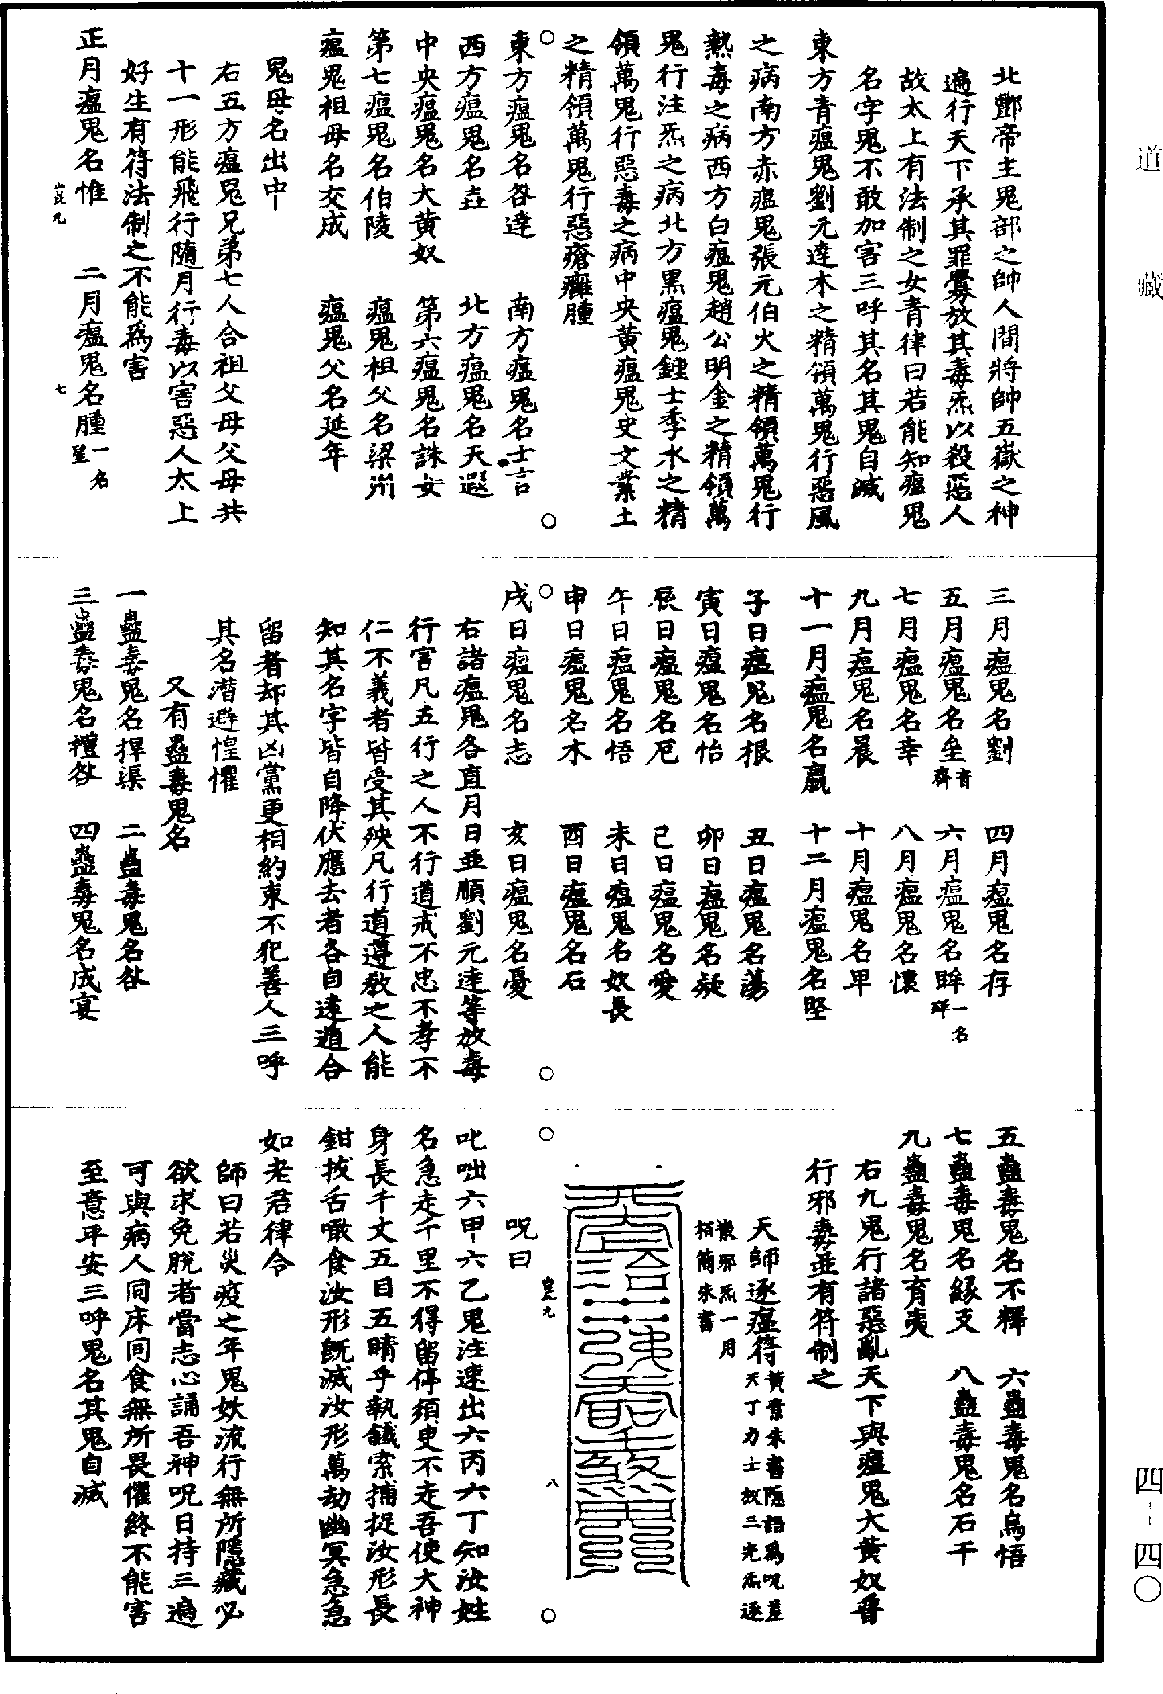 道藏
四-四〇
北酆帝主鬼部之帥人間將帥五嶽之神
遍行天下承其罪釁放其毒炁以殺惡人
故太上有法制之女青律曰若能知瘟鬼
名字鬼不敢加害三呼其名其鬼自滅
東方青瘟鬼劉元達木之精領萬鬼行惡風
之病南方赤瘟鬼張元伯火之精領萬鬼行
熱毒之病西方白瘟鬼趙公明金之精領萬
鬼行注炁之病北方黑瘟鬼鍾士季水之精
領萬鬼行惡毒之病中央黃瘟鬼史文業土
之精領萬鬼行惡瘡癰腫
東方瘟鬼名各達 南方瘟鬼名士言
西方瘟鬼名垚 北方瘟鬼名天遐
中央瘟鬼名大黃奴 第六瘟鬼名誅女
第七瘟鬼名伯陵 瘟鬼祖父名梁州
瘟鬼祖母名交成 瘟鬼父名延年
鬼母名出中
右五方瘟鬼兄弟七人合祖父母父母共
十一形能飛行隨月行毒以害惡人太上
好生有符法制之不能為害
七
正月瘟鬼名惟 二月瘟鬼名腫一名
三月瘟鬼名劉 四月瘟鬼名存
五月瘟鬼名垒音齊 六月瘟鬼名眸一名
七月瘟鬼名幸 八月瘟鬼名懷
九月瘟鬼名晨 十月瘟鬼名卑
十一月瘟鬼名羸 十二月瘟鬼名堅
子日瘟鬼名根 丑日瘟鬼名蕩
寅日瘟鬼名怡 卯日瘟鬼名疑
辰日瘟鬼名厄 巳日瘟鬼名愛
午日瘟鬼名悟 未日瘟鬼名奴長
申日瘟鬼名木 酉日瘟鬼名石
戌日瘟鬼名志 亥日瘟鬼名憂
右諸瘟鬼各直月日並順劉元達等放毒
行害凡五行之人不行道戒不忠不孝不
仁不義者皆受其殃凡行道遵教之人能
知其名字皆自降伏應去者各自遠遁合
留者却其凶黨更相約束不犯善人三呼
其名潛避惶懼
又有蠱毒鬼名
一蠱毒鬼名捍渠 二蠱毒鬼名咎
三蠱毒鬼名禮咎 四蠱毒鬼名成宴
五蠱毒鬼名不釋 六蠱毒鬼名烏悟
七蠱毒鬼名緣支 八蠱毒鬼名石千
九蠱毒鬼名有夷
右九鬼行諸惡亂天下與瘟鬼大黃奴晉
行邪毒並有符制之
天師逐瘟符黃素朱書隱語為呪差
天丁力士放三光炁逐
眾邪炁一月
栢簡朱書
八
呪曰
叱咄六甲六乙鬼注速出六丙六丁知汝姓
名急走千里不得留停須臾不走吾使大神
身長千丈五目五睛手執鐵索捕捉汝形長
鉗拔舌噉食汝形旣滅汝形萬劫幽冥急急
如老君律令
師曰若災疫之年鬼妖流行無所隱藏必
欲求免脫者當志心誦吾神呪日持三遍
可與病人同床同食無所畏懼終不能害
至意平安三呼鬼名其鬼自滅